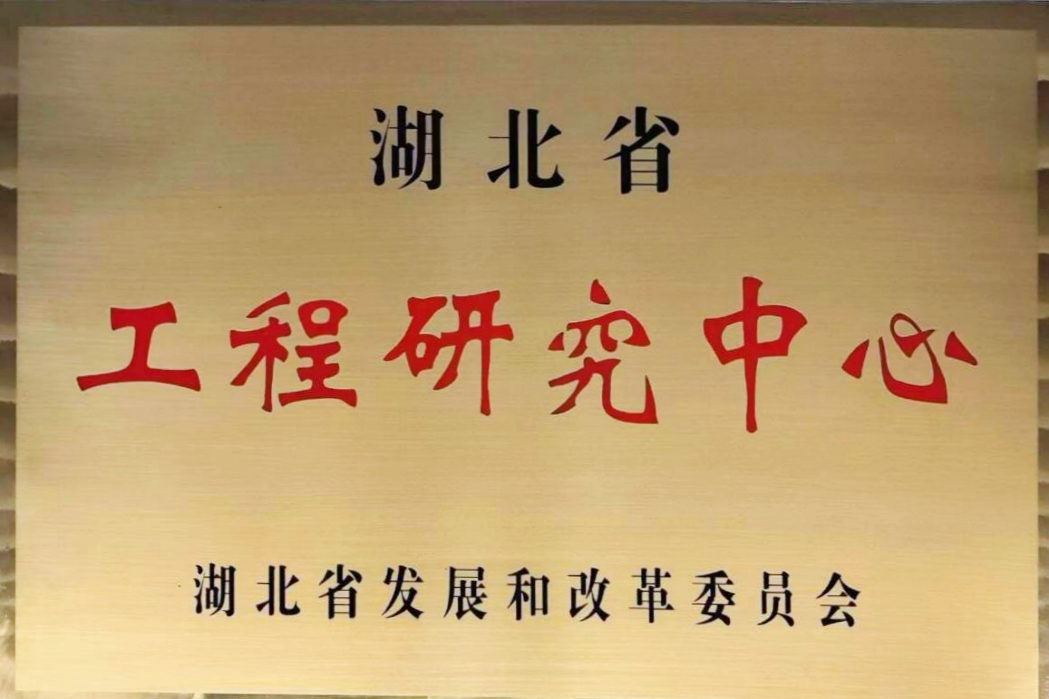 湖北省
工程研究中心
湖北省发展和改革委员会